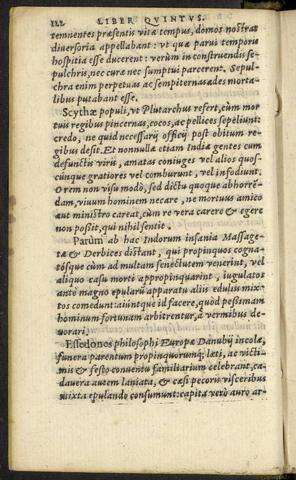 122 LIBER QVINTVS.
temnentes præsentis vitæ tempus, domos nostras
diuersoria appellabant: vt quæ parui temporis
hospitia esse ducerent: verùm in construendis se-
pulchris, nec curæ nec sumptui parcerent. Sepul-
chra enim perpetuas ac sempiternas ædes morta-
libus putabant esse.
Scythæ populi, vt Plutarchus refert, cùm mor
tuis regibus pincernas, cocos, ac pellices sepeliunt:
credo, ne quid necessarij officij post obitum re-
gibus desit. Et nonnullæ etiam Indiæ gentes cum
defunctis viris, amatas coniuges vel alios quos-
cúnque gratiores vel comburunt, vel infodiunt.
O rem non visu modò, sed dictu quoque abhorrē-
dam, viuum hominem necare, ne mortuus amico
aut ministro careat, cùm re vera carere & egere
non possit, qui nihil sentit.
Parùm ab hac Indorum insania Massage-
tæ & Derbices distant, qui propinquos cogna-
tósque cùm ad multam senectutem venerint, vel
aliquo casu morti appropinquarint, iugulatos
ante magno epularū apparatu aliis edulis mix-
tos comedunt: aiúntque id facere, quòd pessimam
hominum fortunam arbitrentur, à vermibus de-
uorari.
Essedones philosophi Europæ Danubij incolæ,
funera parentum propinquorumq; læti, ac victi-
mis & festo conuentu familiarium celebrant, ca-
dauera autem laniata, & cæsi pecoris visceribus
mixta epulando consumunt: capita verò auro ar-